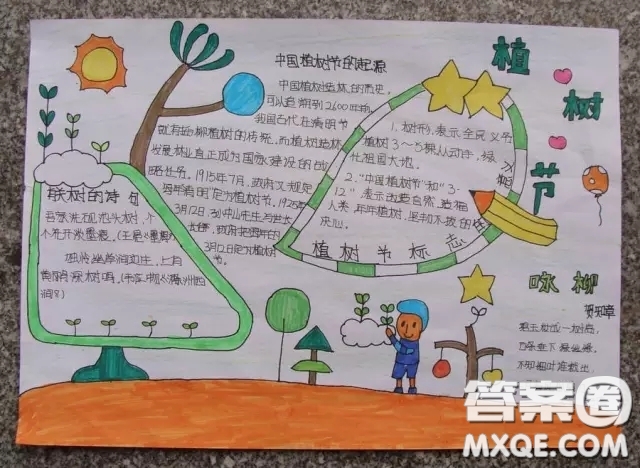 植树节
中国植树节的起源
中国植树造林的历史,
可以追溯到2600年前,
我国古代在清明节
就有插柳植树的传统,而植树造林
发展林业真正成为国家建设的战
略任务。1915年7月,政府又规定
每年清明"定为植树节,1925年
3月12日,孙中山先生与世长
3月12日定为植树节
节。
1.树形,表示全民义务
植树3~5棵,人人动手,绿
化祖国大地。
2."中国植树节"和"3·
12"表示改造自然,造福
人类,年年植树,坚韧不拔的
决心。
植树节标志
关于树的诗句
吾家洗砚池头树,个
个花开淡墨痕。(王冕《墨梅》)
黄鹂深树鸣。(韦应物《滁州西
涧》)
咏柳
贺知章
碧玉妆成一树高,
万条垂下绿丝绦。
不知细叶谁裁出,
答案圈
MXQE.COM